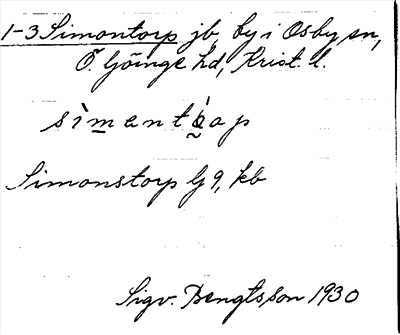 1-3 Simontorp jb, by i Osby sn,
Ö. Göinge hd, Krist. l.
Simonstorp G 9, kb
Sigv. Bengtsson 1930